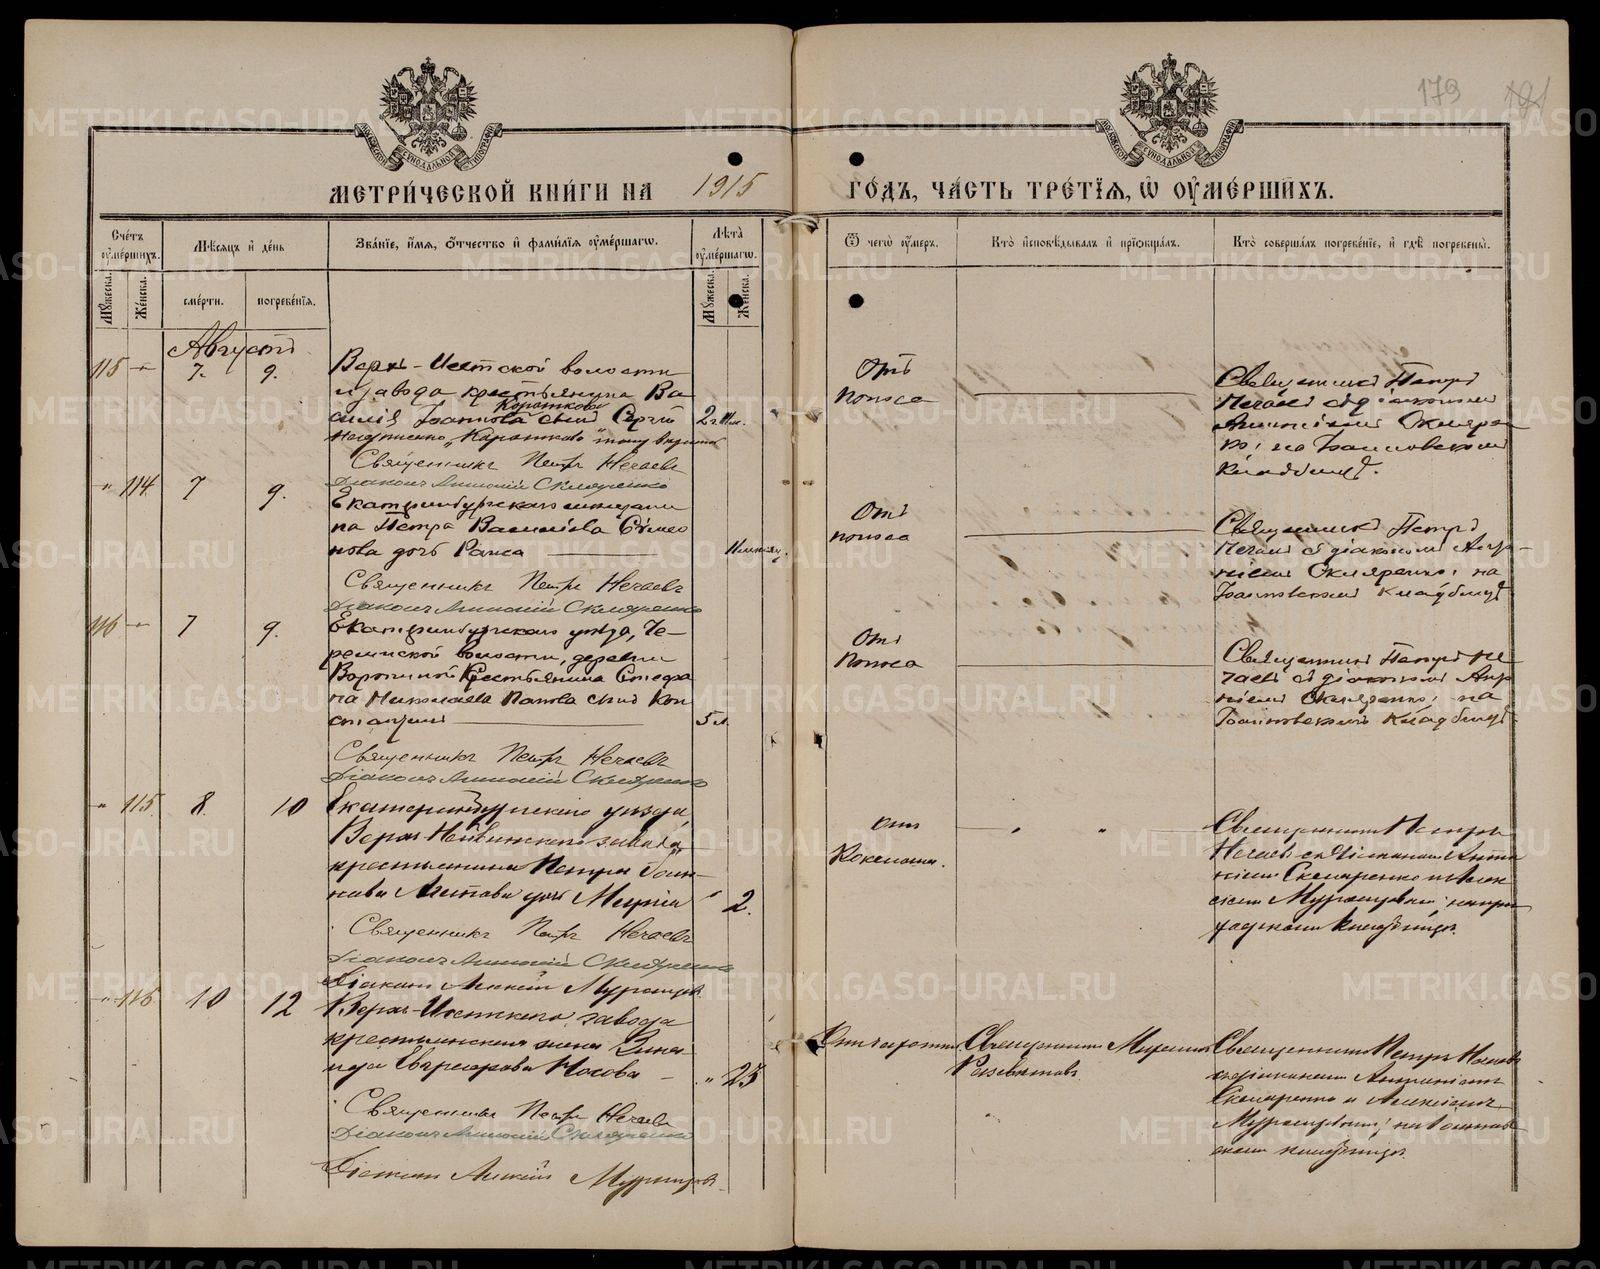 179
МЕТРИ́ЧЕСКОЙ КНИ́ГИ НА 1915 ГО́ДЪ, ЧА́СТЬ ТРЕ́ТЇѦ, Ѡ҆ ОУ҆МЕ́РШИХЪ.
Сче́тъ оу҆ме́ршихъ.
Мꙋ́жеска.
Же́нска.
Мѣ́сѧцъ и҆ де́нь
сме́рти.
погребе́нїѧ.
Зва́нїе, и҆́мѧ, ѻ҆́тчество и҆ фами́лїѧ оу҆ме́ршагѡ.
Лѣ́та оу҆ме́ршагѡ.
Мꙋ́жеска.
Же́нска.
Ѿ чегѡ̀ оу҆́меръ.
Кто̀ и҆сповѣ́дывалъ и҆ прїѡбща́лъ.
Кто̀ соверша́лъ погребе́нїе, и҆ гдѣ̀ погребены̀.
Августъ
115 — 7. 9.
Верхъ-Исетской волости
и завода крестьянина Ва
Короткова
силія Іоаннова сынъ Сергій 2 г.
Надписанно „Короткова“ тому верить
Священникъ Петръ Нечаевъ
Діаконъ Антоній Скляренко
Отъ
поноса
Священникъ Петръ
Нечаевъ съ діакономъ
Антоніемъ Скляренко
на Іоанновскомъ
кладбищѣ.
" 114. 7 9.
Екатеринбургскаго мещани
на Петра Васильева Симео
нова дочь Раиса
Священникъ Петръ Нечаевъ
Діаконъ Антоній Скляренко
Отъ
поноса
Священникъ Петръ
Нечаевъ съ діакономъ Анто-
ніемъ Скляренко, на
Іоанновскомъ кладбищѣ
116 — 7 9.
Екатеринбургскаго уѣзда,
волости, деревни
крестьянина Стефа
на Николаева Панова сынъ Кон
стантинъ 5 л.
Священникъ Петръ Нечаевъ
Діаконъ Антоній Скляренко
Отъ
поноса
Священникъ Петръ Не
чаевъ съ діакономъ Анто
ніемъ Скляренко, на
Іоанновскомъ кладбищѣ
" 115. 8. 10
Екатеринбургскаго уѣзда,
Верхъ-Нейвинскаго завода
крестьянина Петра Іоан-
нова дочь Марія " 2.
Священникъ Петръ Нечаевъ
Діаконъ Антоній Скляренко
Діаконъ Алексій
отъ
Коклюша.
Священникъ Петръ
Нечаевъ съ діаконами Анто
ніемъ Скляренко и Алек
сіемъ
кладбищѣ.
" 116 10 12
Верхъ-Исетскаго завода
крестьянская жена Зина
ида Носова " 23
Священникъ Петръ Нечаевъ
Діаконъ Антоній Скляренко
Діаконъ Алексій
Отъ чахотки
Священникъ
Священникъ Петръ Нечаевъ
съ діаконами Антоніемъ
Скляренко и Алексіемъ
на Іоаннов
скомъ кладбищѣ.
METRIKI.GASO-URAL.RU